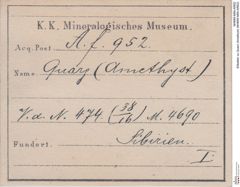 K. K. Mineralogisches Museum.
Acq. Post A. f. 952.
Name Quarz (Amethyst)
V. d. N. 474 (38/16) M. 4690
Fundort. Sibirien.
I.